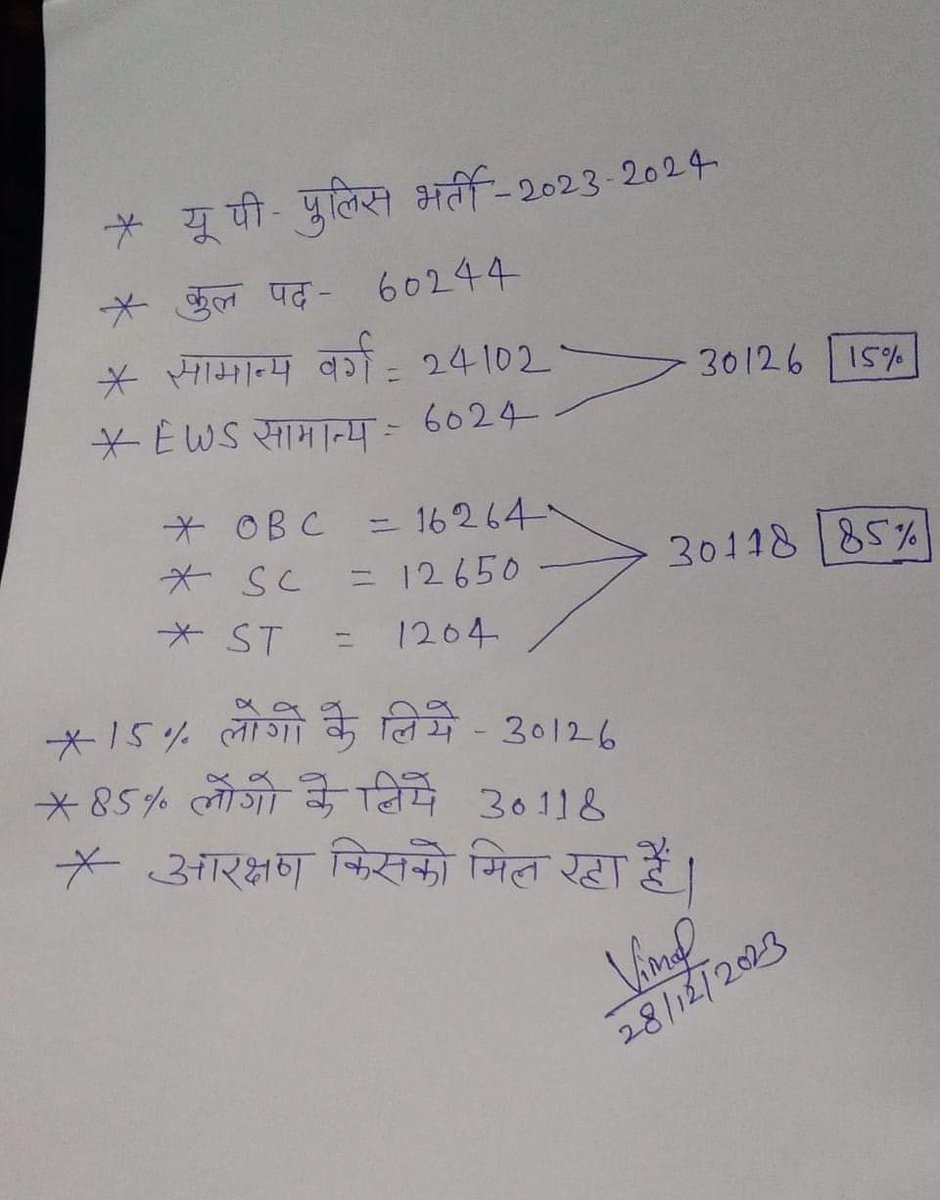 * यू पी - पुलिस भर्ती - 2023-2024
* कुल पद - 60244
* सामान्य वर्ग = 24102
30126 15%
* EWS सामान्य = 6024
* OBC = 16264
* SC = 12650
30118 85%
* ST = 1204
* 15% लोगो के लिये - 30126
* 85% लोगो के लिये 30118
* आरक्षण किसको मिल रहा हैं।
Vimal
28/12/2023